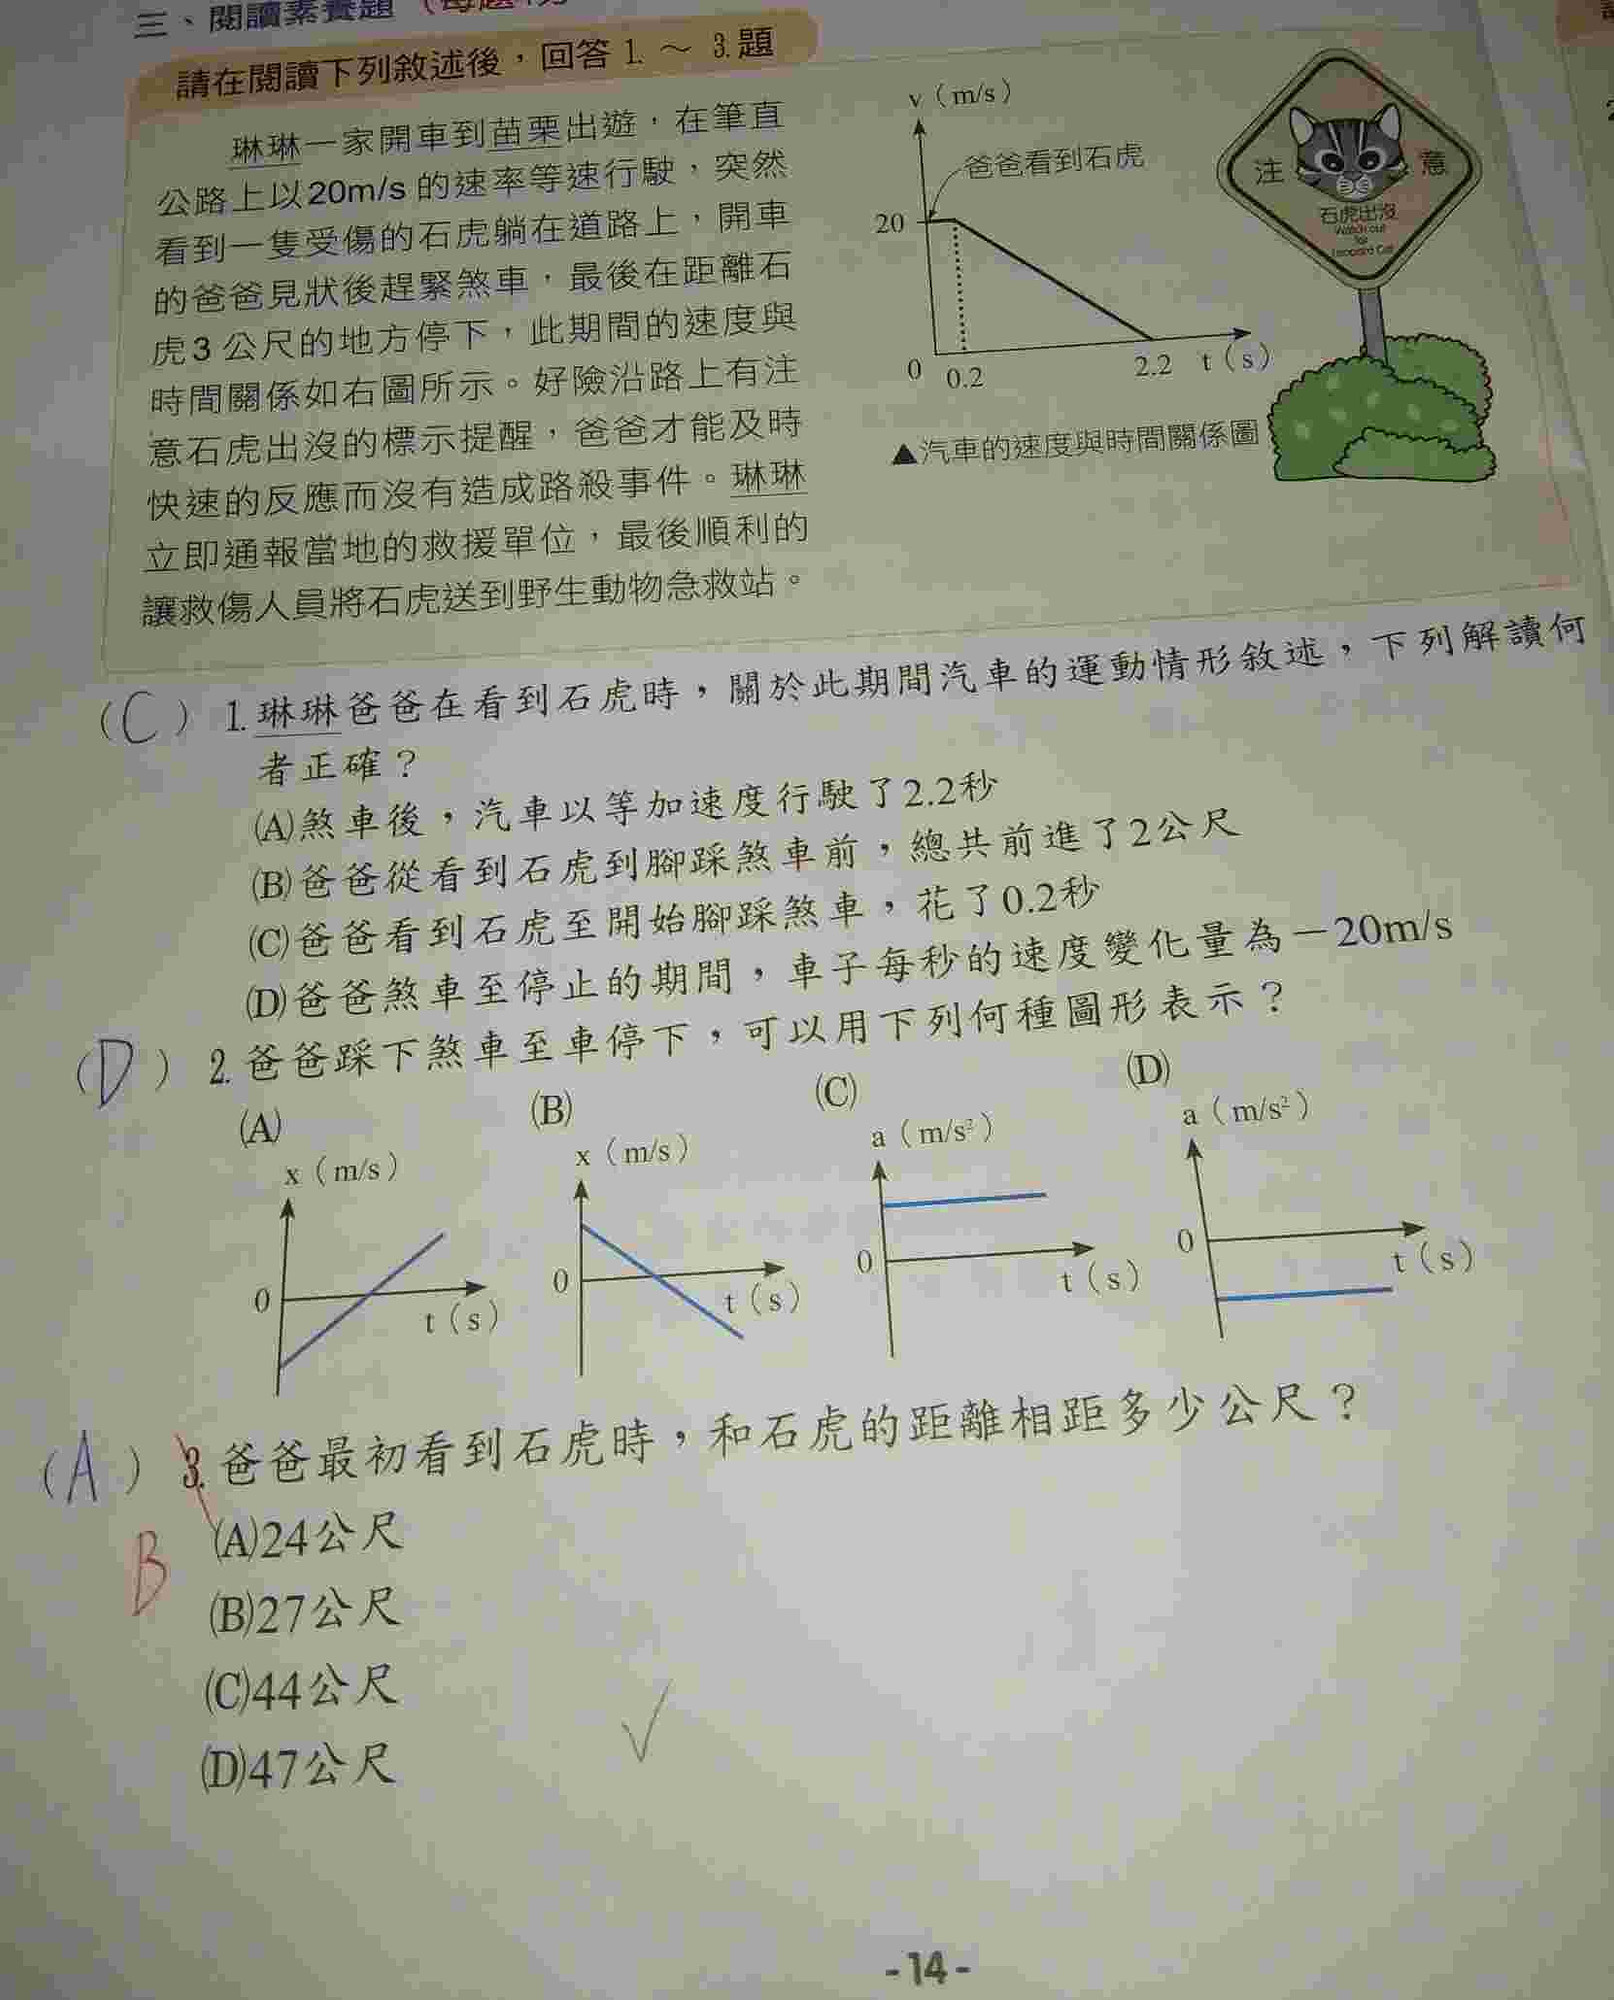 三、閱讀素養題
請在閱讀下列敘述後，回答 1. ～ 3. 題
琳琳一家開車到苗栗出遊，在筆直
公路上以20m/s 的速率等速行駛，突然
看到一隻受傷的石虎躺在道路上，開車
的爸爸見狀後趕緊煞車，最後在距離石
虎3 公尺的地方停下，此期間的速度與
時間關係如右圖所示。好險沿路上有注
意石虎出沒的標示提醒，爸爸才能及時
快速的反應而沒有造成路殺事件。琳琳
立即通報當地的救援單位，最後順利的
讓救傷人員將石虎送到野生動物急救站。
v（m/s）
爸爸看到石虎
20
0
0.2
2.2
t（s）
▲汽車的速度與時間關係圖
注 意
石虎出沒
Watch out
for
Leopard Cat
（C）1. 琳琳爸爸在看到石虎時，關於此期間汽車的運動情形敘述，下列解讀何
者正確？
(A)煞車後，汽車以等加速度行駛了2.2秒
(B)爸爸從看到石虎到腳踩煞車前，總共前進了2公尺
(C)爸爸看到石虎至開始腳踩煞車，花了0.2秒
(D)爸爸煞車至停止的期間，車子每秒的速度變化量為－20m/s
（D）2. 爸爸踩下煞車至車停下，可以用下列何種圖形表示？
(A)
x（m/s）
0
t（s）
(B)
x（m/s）
0
t（s）
(C)
a（m/s²）
0
t（s）
(D)
a（m/s²）
0
t（s）
（A）3. 爸爸最初看到石虎時，和石虎的距離相距多少公尺？
B
(A)24公尺
(B)27公尺
(C)44公尺
(D)47公尺
-14-